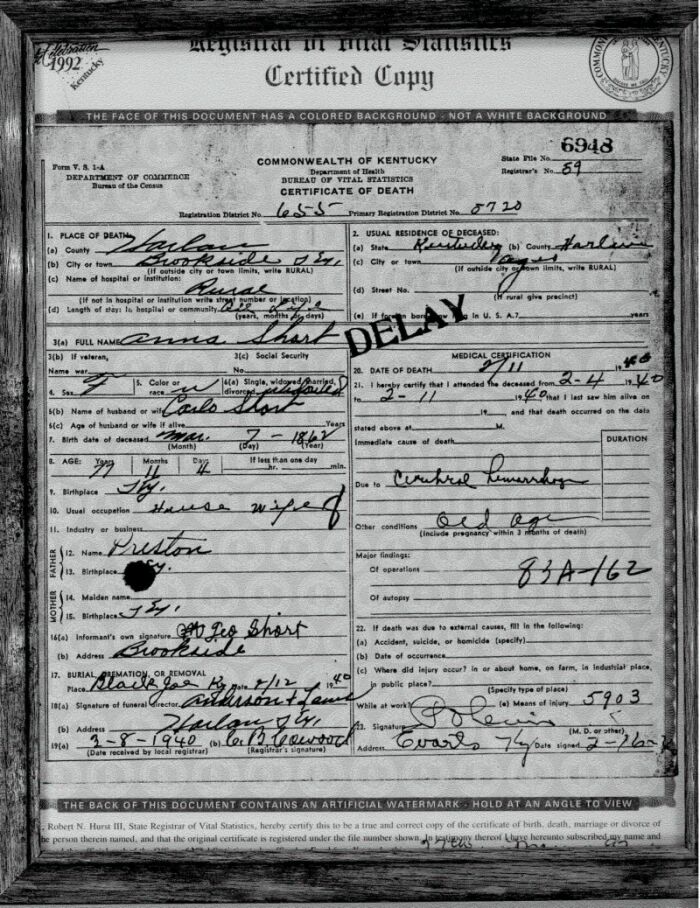 Celebration
1992
Kentucky
Registrar of Vital Statistics
Certified Copy
COMMONWEALTH OF KENTUCKY
THE FACE OF THIS DOCUMENT HAS A COLORED BACKGROUND - NOT A WHITE BACKGROUND
6948
Form V. S. 1-A
DEPARTMENT OF COMMERCE
Bureau of the Census
COMMONWEALTH OF KENTUCKY
Department of Health
BUREAU OF VITAL STATISTICS
CERTIFICATE OF DEATH
State File No.
Registrar's No. 59
Registration District No. 655 Primary Registration District No. 5720
1. PLACE OF DEATH
(a) County Harlan
(b) City or town Brookside Ky.
(If outside city or town limits, write RURAL)
(c) Name of hospital or institution:
Rural
(If not in hospital or institution write street number or location)
(d) Length of stay: In hospital or community All Life
(years, months or days)
2. USUAL RESIDENCE OF DECEASED:
(a) State Kentucky (b) County Harlan
(c) City or town Ages
(If outside city or town limits, write RURAL)
(d) Street No.
(If rural give precinct)
(e) If foreign born how long in U. S. A.? years
DELAY
3(a) FULL NAME Anna Short
3(b) If veteran,
Name war
3(c) Social Security
No.
4. Sex F
5. Color or
race W
6(a) Single, widowed, married,
divorced widowed
6(b) Name of husband or wife Short
6(c) Age of husband or wife if alive Years
7. Birth date of deceased Mar. 7 - 1862
(Month) (Day) (Year)
8. AGE: Years Months Days If less than one day
77 11 4 hr. min.
9. Birthplace Ky.
10. Usual occupation House wife
11. Industry or business
FATHER
12. Name Preston
13. Birthplace Ky.
MOTHER
14. Maiden name
15. Birthplace Ky.
16(a) Informant's own signature Geo Short
(b) Address Brookside
17. BURIAL, CREMATION, OR REMOVAL
Place Black Joe Ky Date 2/12 1940
18(a) Signature of funeral director Anderson &
(b) Address Harlan Ky.
19(a) 3-8-1940 (b) C. B. Cawood
(Date received by local registrar) (Registrar's signature)
MEDICAL CERTIFICATION
20. DATE OF DEATH 2/11 1940
21. I hereby certify that I attended the deceased from 2-4 1940
to 2-11 1940 that I last saw him alive on
19 and that death occurred on the date
stated above at M.
Immediate cause of death
DURATION
Due to Cerebral hemorrhage
Other conditions Old age
(Include pregnancy within 3 months of death)
Major findings:
Of operations
83A-162
Of autopsy
22. If death was due to external causes, fill in the following:
(a) Accident, suicide, or homicide (specify)
(b) Date of occurrence
(c) Where did injury occur? in or about home, on farm, in industrial place,
in public place?
(Specify type of place)
While at work? (e) Means of injury 5903
23. Signature
(M. D. or other)
Address Evarts Ky Date signed
THE BACK OF THIS DOCUMENT CONTAINS AN ARTIFICIAL WATERMARK - HOLD AT AN ANGLE TO VIEW
Robert N. Hurst III, State Registrar of Vital Statistics, hereby certify this to be a true and correct copy of the certificate of birth, death, marriage or divorce of
the person therein named, and that the original certificate is registered under the file number shown. In testimony thereof I have hereunto subscribed my name and